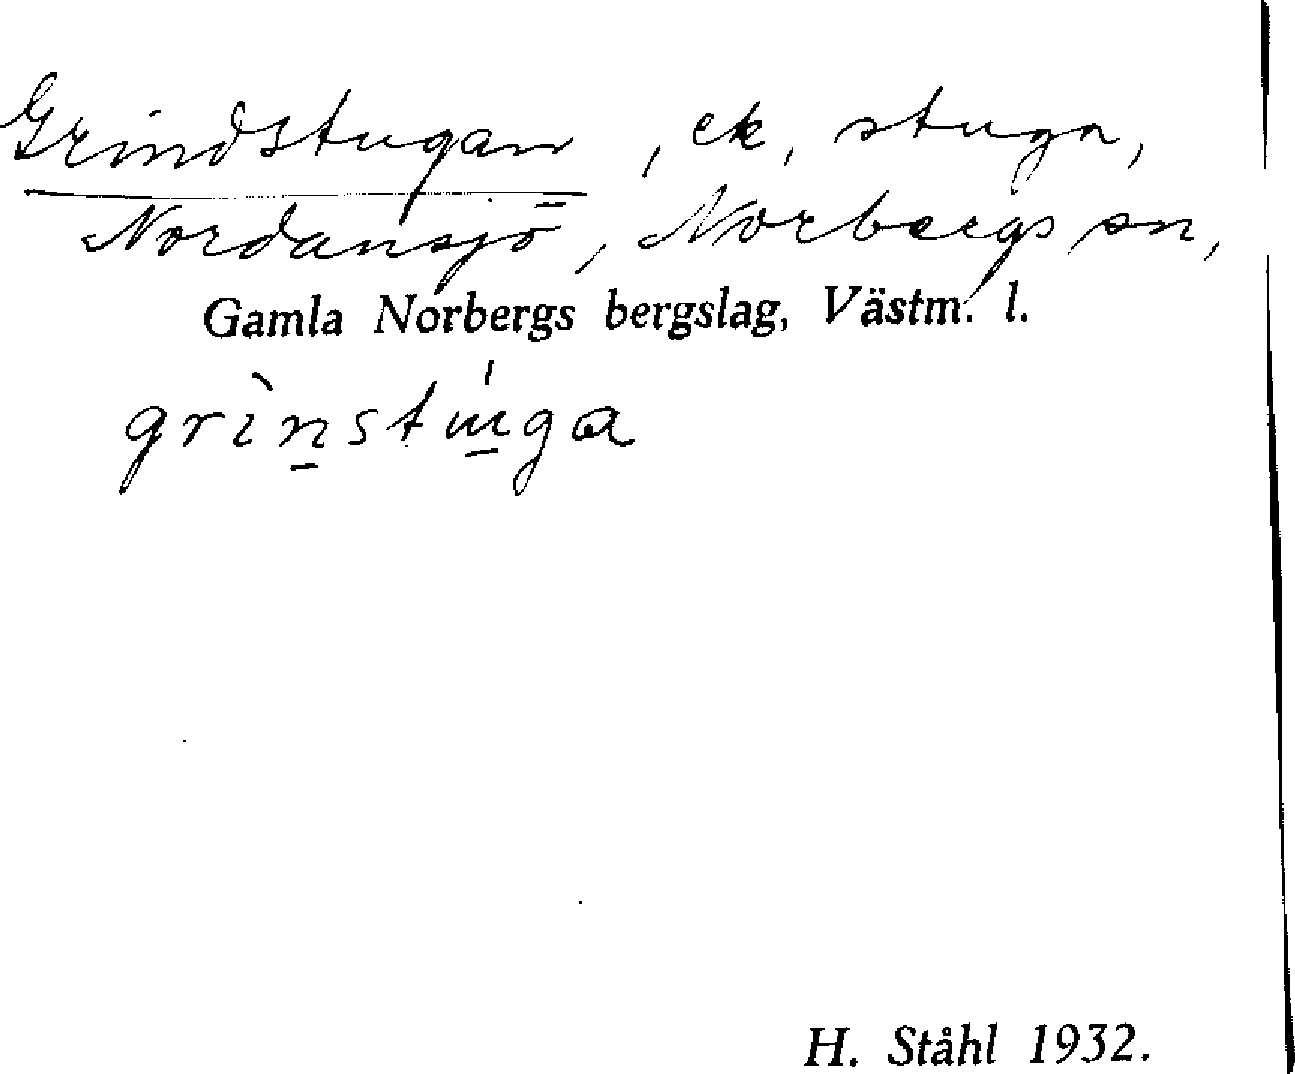 Grindstugan, ek, stuga,
Nordansjö, Norbergs sn,
Gamla Norbergs bergslag, Västm. l.
grìn̲stú̲ga
H. Ståhl 1932.